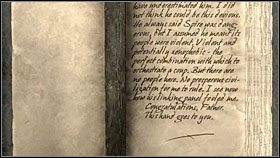 have underestimated him. I did
not think he could be this devious.
We always said Spire was dang-
erous, but I assumed he meant its
people were violent. Violent and
potentially xenophobic - the
perfect combination with which to
orchestrate a coup. But there are
no people here. No prosperous civi-
lization for me to rule. I see now
how his linking panel fooled me.
Congratulations, Father.
This hand goes to you.